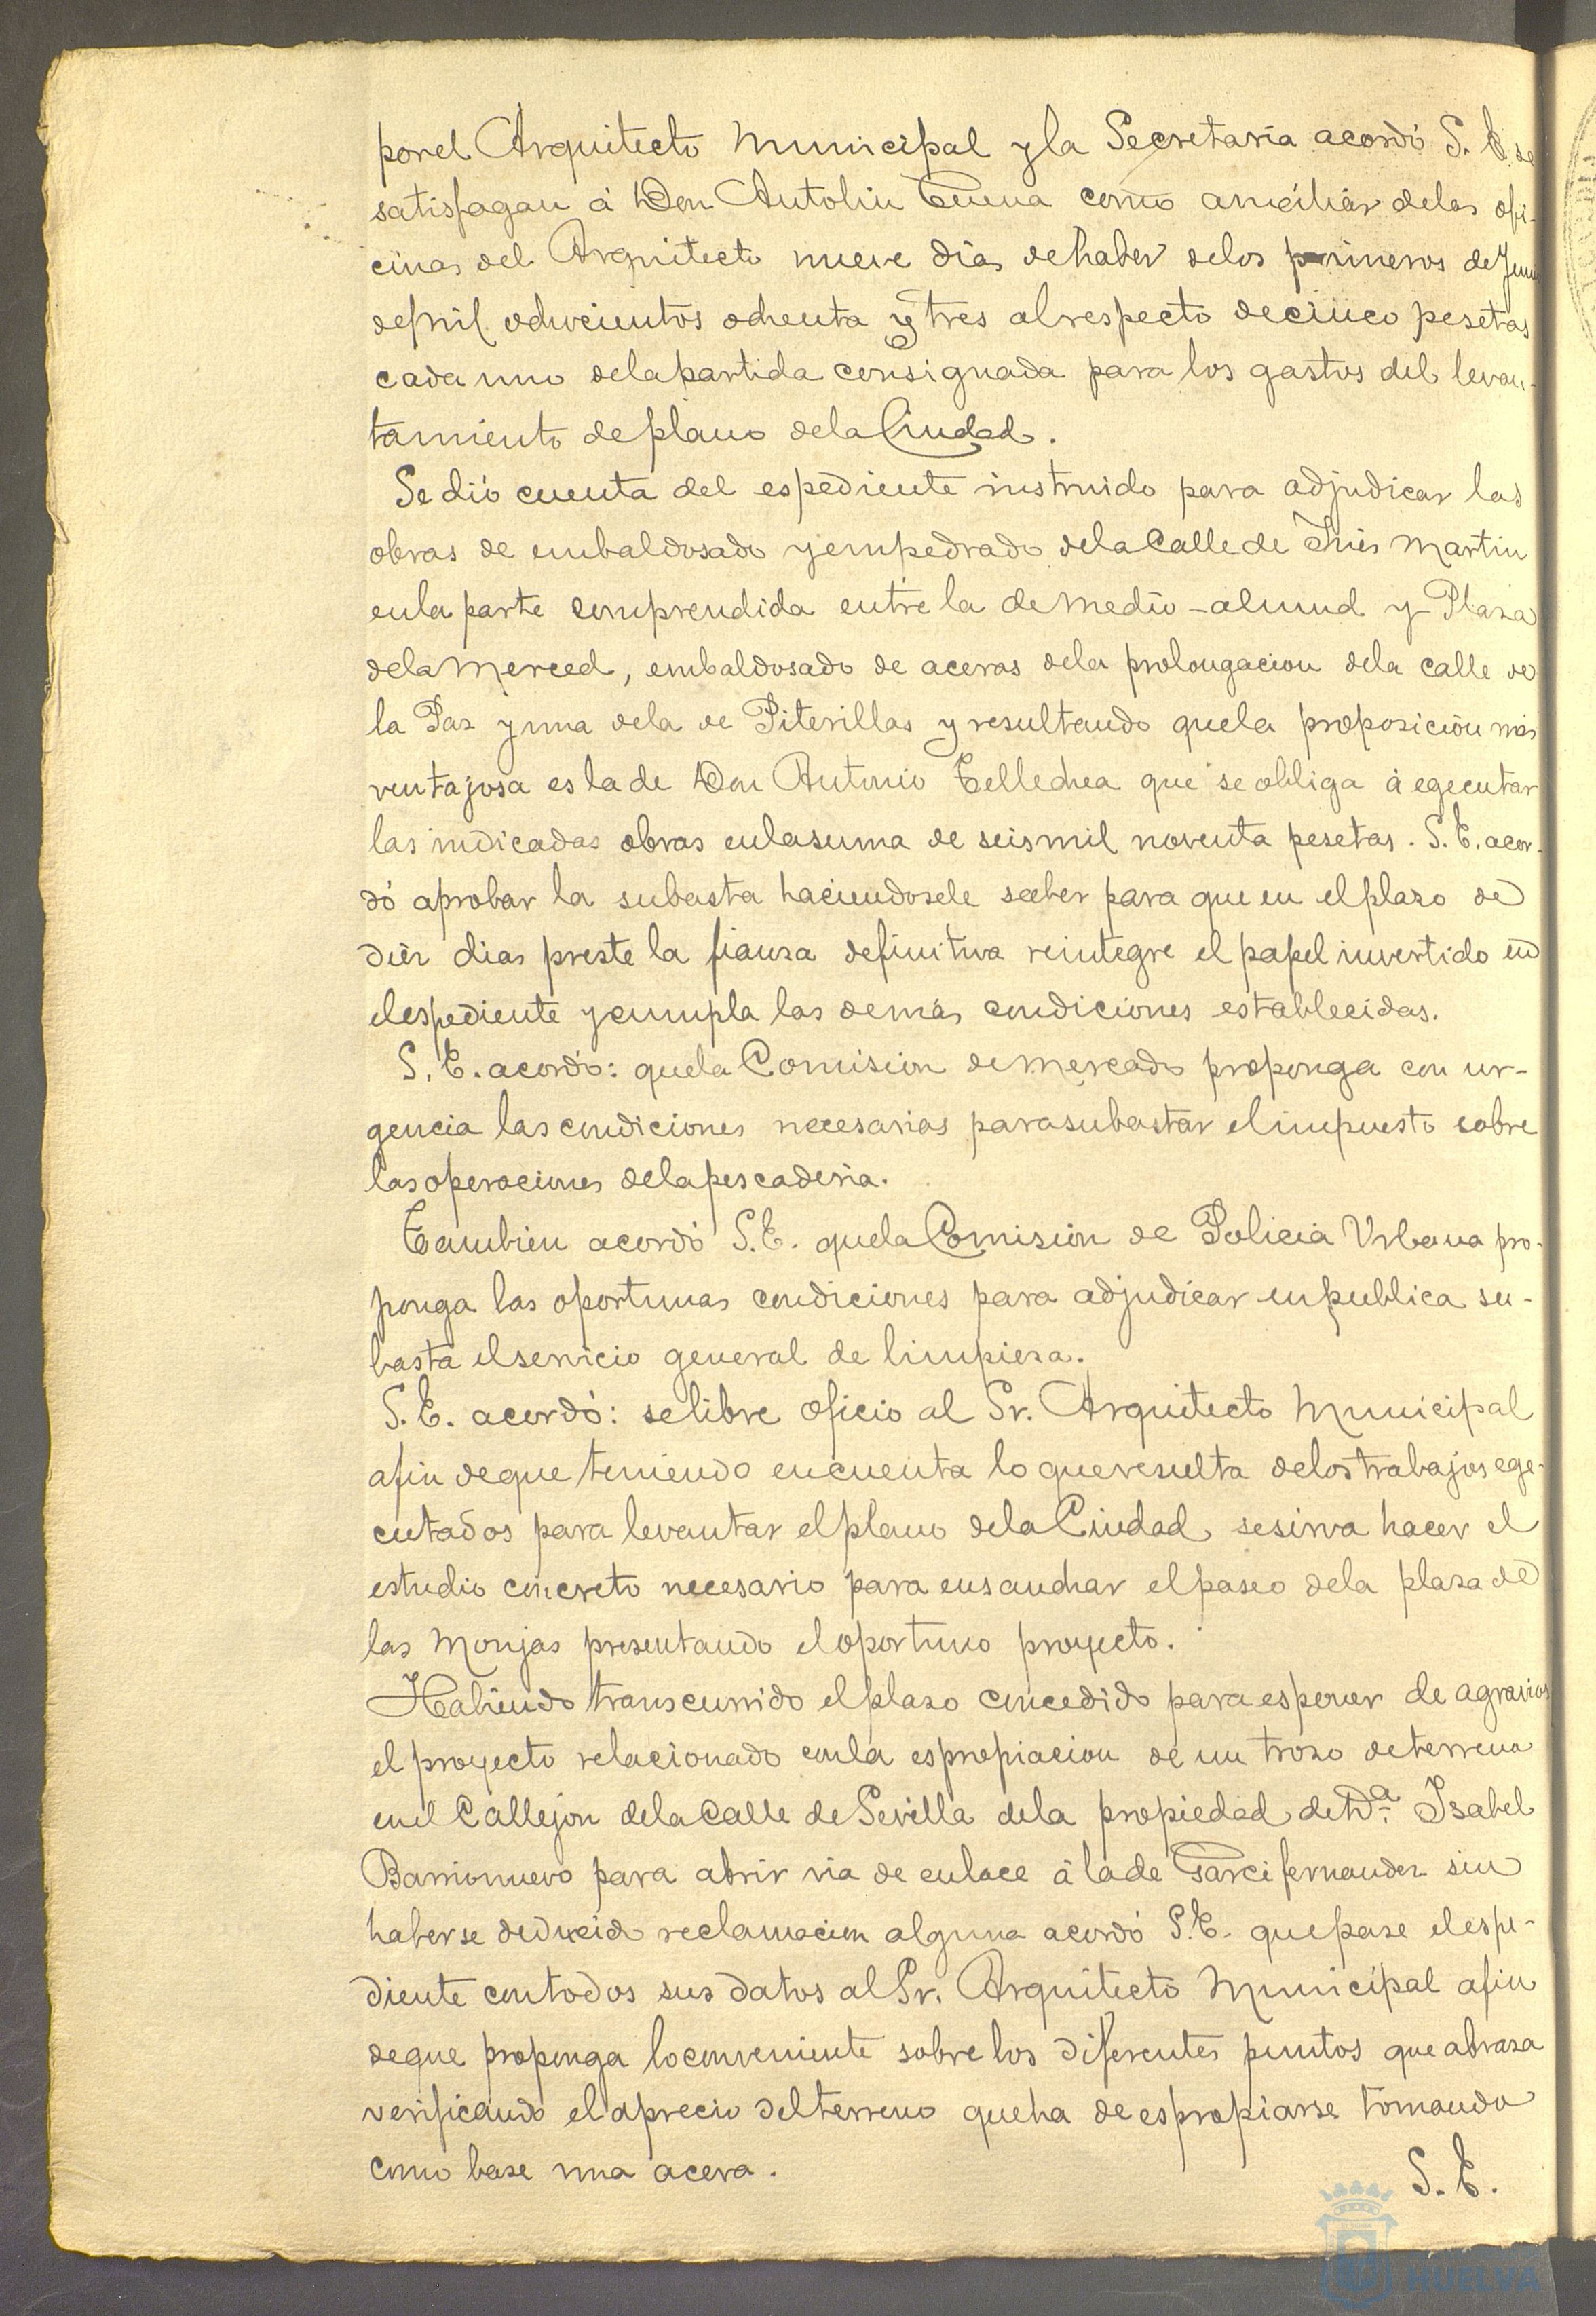 por el Arquitecto Municipal y la Secretaría acordó S. E. se
satisfagan á Don Antolin Cuena como auxiliar de las ofi-
cinas del Arquitecto nueve dias de haber de los primeros de Junio
de mil ochocientos ochenta y tres al respecto de cinco pesetas
cada uno de la partida consignada para los gastos del levan-
tamiento de plano de la Ciudad.
Se dió cuenta del espediente instruido para adjudicar las
obras de embaldosado y empedrado de la Calle de Inés Martin
en la parte comprendida entre la de Medio-almud y Plaza
de la Merced, embaldosado de aceras de la prolongacion de la calle de
la Paz y una de la de Piterillas y resultando que la proposición más
ventajosa es la de Don Antonio Tellechea que se obliga á egecutar
las indicadas obras en la suma de seis mil noventa pesetas. S. E. acor-
dó aprobar la subasta haciendosele saber para que en el plazo de
diéz dias preste la fianza definitiva reintegre el papel invertido en
el espediente y cumpla las demás condiciones establecidas.
S. E. acordó: que la Comision de Mercado proponga con ur-
gencia las condiciones necesarias para subastar el impuesto sobre
las operaciones de la pescadería.
Tambien acordó S. E. que la Comision de Policia Urbana pro-
ponga las oportunas condiciones para adjudicar en publica su-
basta el servicio general de limpieza.
S. E. acordó: se libre oficio al Sr. Arquitecto Municipal
afin de que teniendo en cuenta lo que resulta de los trabajos ege-
cutados para levantar el plano de la Ciudad se sirva hacer el
estudio concreto necesario para ensanchar el paseo de la plaza de
las Monjas presentando el oportuno proyecto.
Habiendo transcurrido el plazo concedido para esponer de agravios
el proyecto relacionado con la espropiacion de un trozo de terreno
en el Callejon de la Calle de Sevilla de la propiedad de D.ª Isabel
Barrionuevo para abrir via de enlace á la de Garcifernandez sin
haberse deducido reclamacion alguna acordó S. E. que pase el espe-
diente con todos sus datos al Sr. Arquitecto Municipal afin
de que proponga lo conveniente sobre los diferentes puntos que abraza
verificando el aprecio del terreno que ha de espropiarse tomando
como base una acera.
S. E.
HUELVA